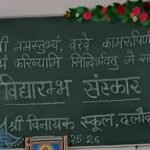 नमस्तुभ्यं, वरदे कामरूपिणि
करिष्यामि सिद्धिर्भवतु मे
विद्यारम्भ संस्कार
श्री विनायक स्कूल, दलौदा
25 26